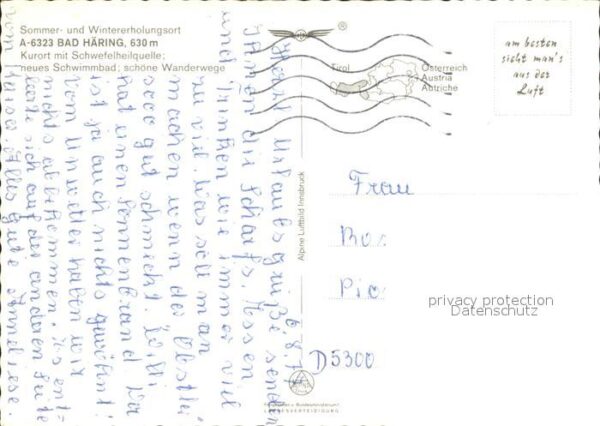 Sommer- und Wintererholungsort
A-6323 BAD HÄRING, 630 m
Kurort mit Schwefelheilquelle;
neues Schwimmbad; schöne Wanderwege
®
Tirol
Österreich
Austria
Autriche
am besten
sieht man's
aus der
Luft
Alpine Luftbild Innsbruck
6.8.
Urlaubsgrüße senden
Ihnen die Scharfs. Essen
und Trinken wie immer viel
zu viel. Was soll man
machen wenn der Obstler
sooo gut schmeckt. Willi
hat einen Sonnenbrand
ist ja auch nichts gewöhnt.
Vom Unwetter haben wir
nichts abbekommen. Es ent-
lädt sich auf der anderen Seite
vom Kaiser. Alles Gute Anneliese
Frau
Pio
D5300
privacy protection
Datenschutz